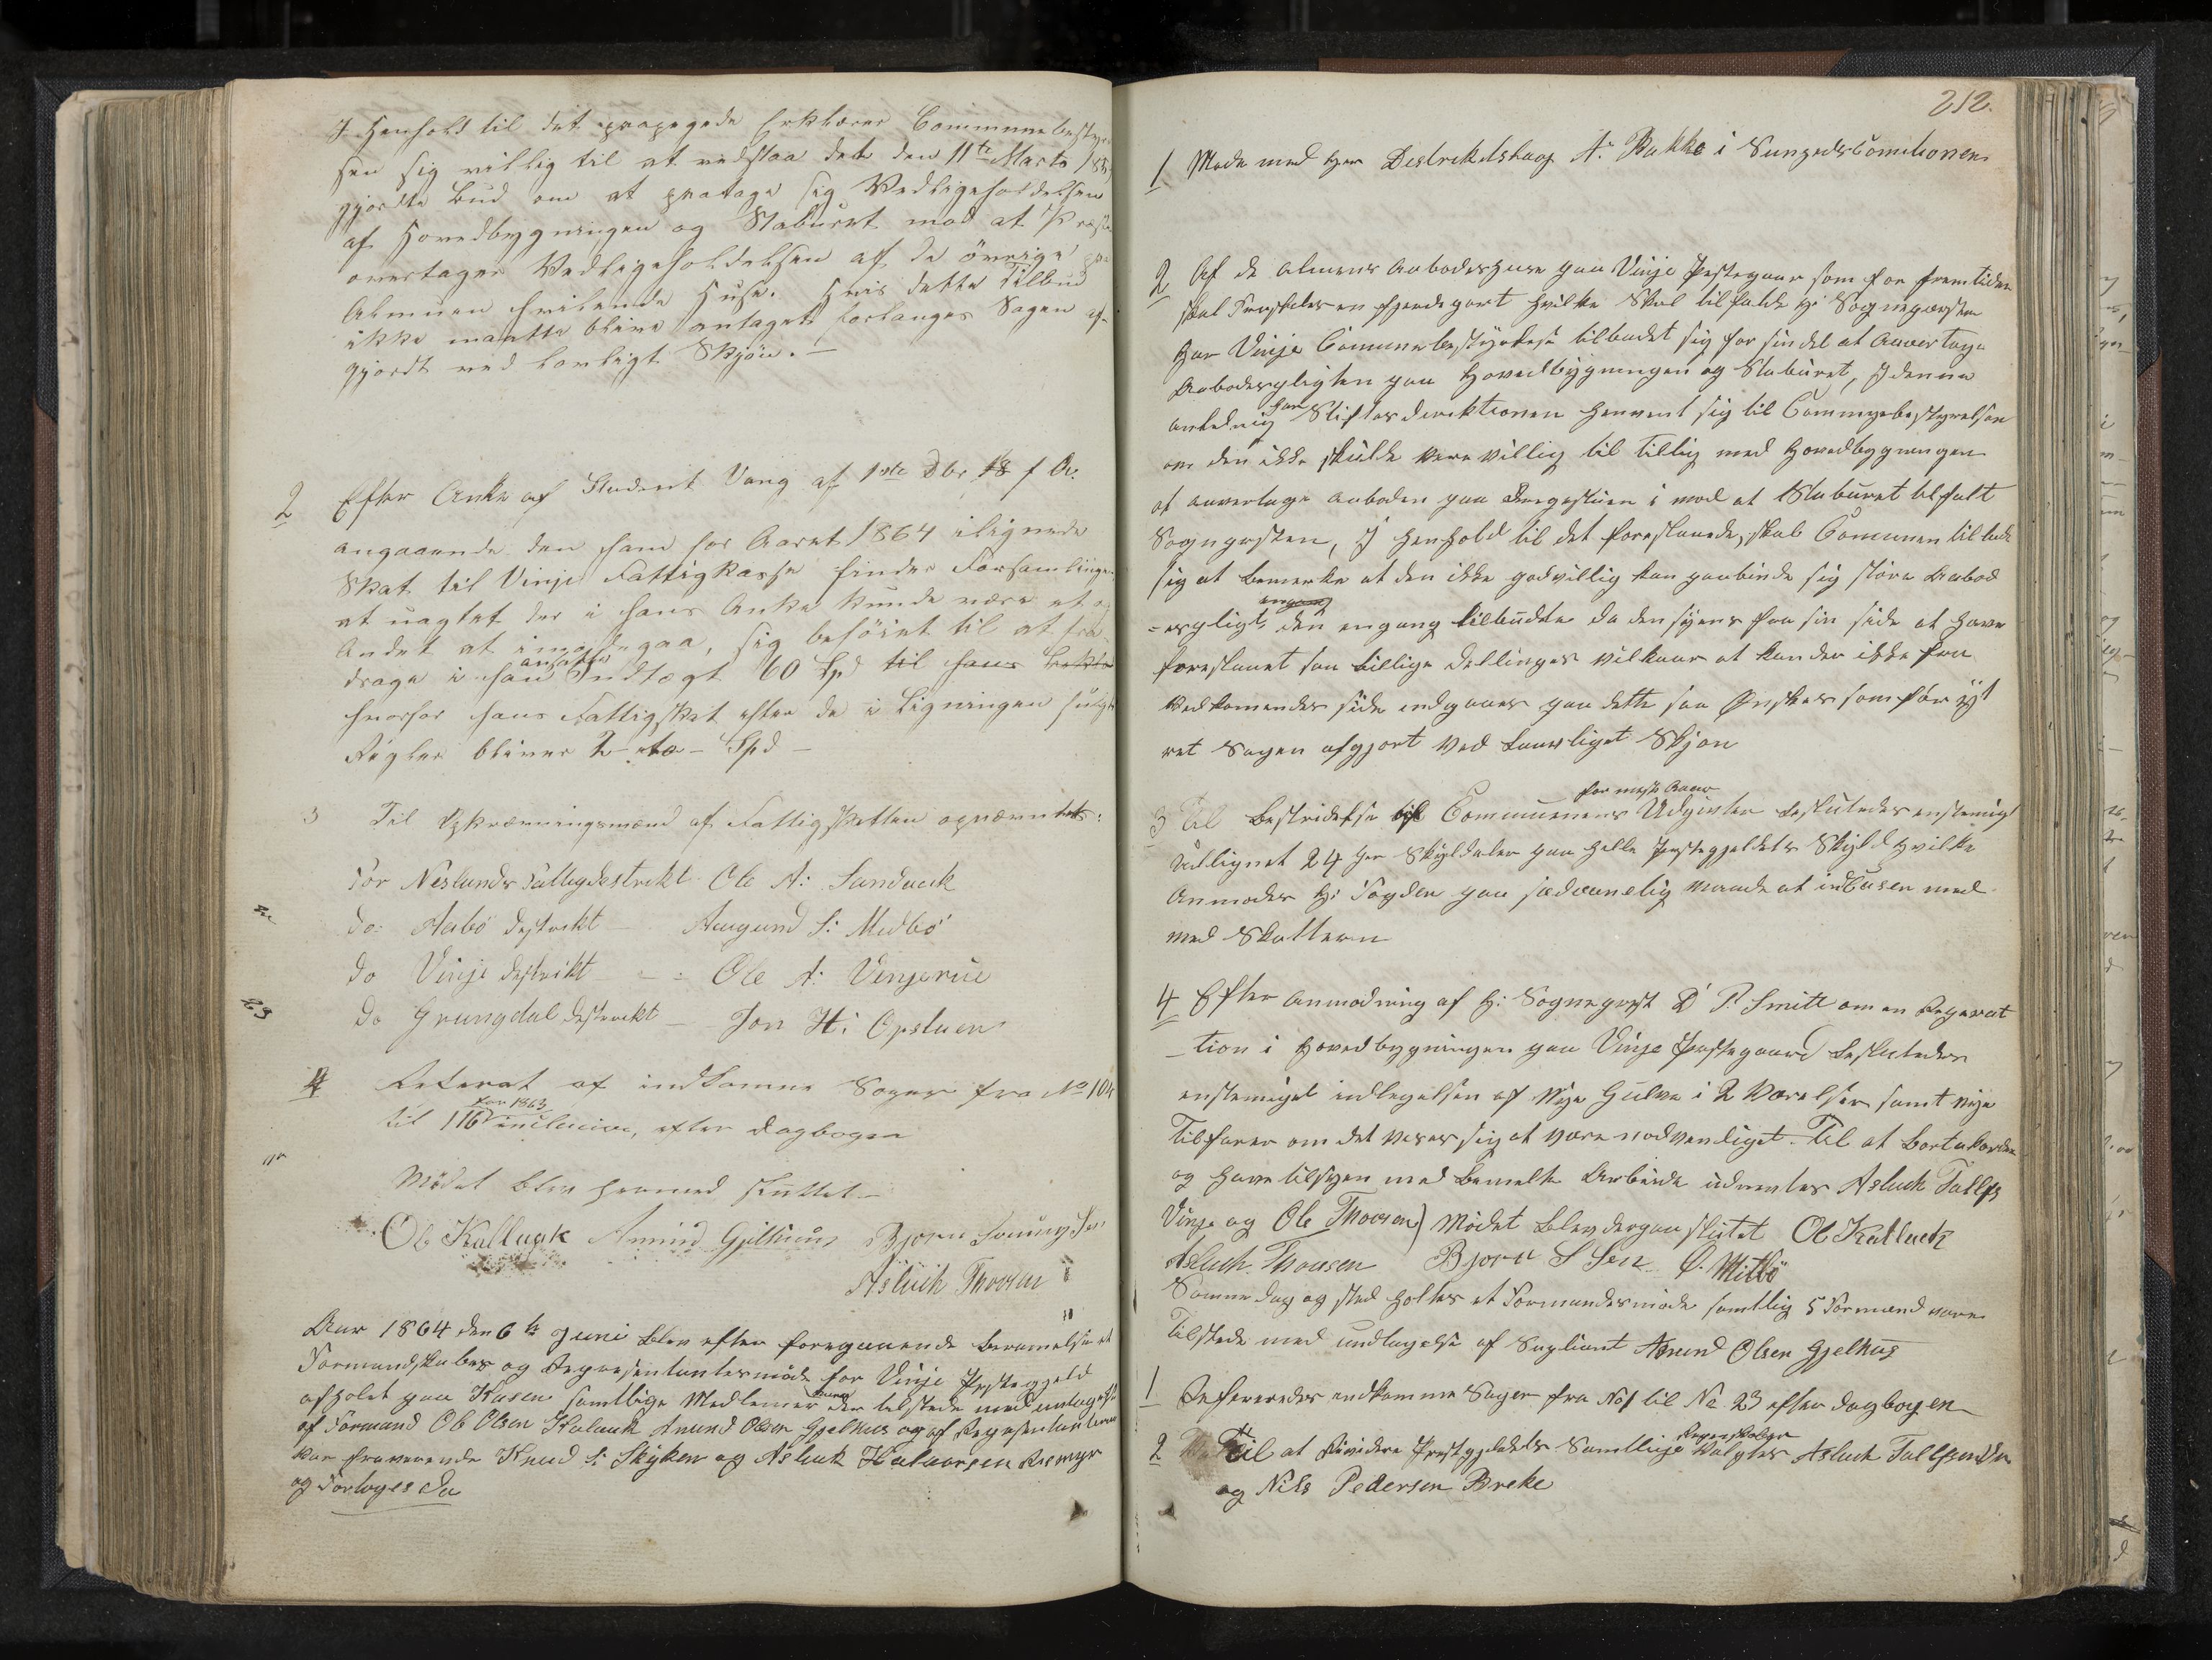 I Henhold til det paapegede Erklærer Communebestyrel
sen sig villig til at vedstaa det den 11te Marts 185
gjordte Bud om at paatage sig Vedligeholdelsen
af Hovedbygningen og Staburet mod at Præste
overtager Vedligeholdelsen af de övrige paa
Almuen hvilende Huse. Hvis dette Tilbud
ikke maatte blive antaget forlanges Sagen af-
gjordt ved lovligt Skjön. —
2 Efter Anke af Student Vang af 1ste Dbr 18 f Ar.
angaaende den ham for Aaret 1864 ilignede
Skat til Vinje Fattigkasse finder Forsamlingen
at uagtet der i hans Anke kunde være et og
Andet at imødegaa, sig beföiet til at fra-
drage i hans ansatte Indtægt 60 Spd til hans
hvorfor hans Fattigskat efter de i Ligningen fulgte
Regler bliver 2 - to - Spd —
3 Til Opkrævningsmænd af Fattigskatten opnævntes:
For Neslands Fattigdestrikt Ole A: Sandvek
do: Aabö Destrekt — Aasmund S: Midbö
do Vinje Destrikt - - : Ole A: Venjerui
do Grungdal Destrekt — Jon H: Opstuen
4 Referat af indkomne Sager fra No 104
til 116 for 1863 inclusive, efter Dagbogen
Mödet blev hermed sluttet —
Ol Kalluak Anund Gjelhuus Bjorn
Asluck Thovsen
Aar 1864 den 6te Juni blev efter foregaaende berammelse et
Formandskabes og Representantermöde for Vinje Prestegjeld
afholdt paa Husen samtlige Medlemer vare tilstede med undtagelse
af Formand Ol Olsen Kaluak Anund Olsen Gjelhus og af Representanterne
var fraværende Knud S: Skyken og Asluk Halvorsen Rismyr
og Fortoges Da
212.
1 Møde med Her Destrektslæge A. Bakke i Sundhedscomitionen
2 Af de almens Aabodshuse paa Vinje Prestegaar som for fremtiden
skal Fraskiles en fjerdepart hvilke Skal tilfalde Hr Sognepræsten
har Vinje Comunebestyrelse tilbudet sig for sin del at Auvertage
Aabodespligten paa Hovedbygningen og Staburet, I denne
anledning har Stiftesdirektionen henvent sig til Communebestyrelsen
om den ikke skulde være villig til Tillig med Hovedbygningen
at auvertage Aaboden paa Borgestuen i mod at Staburet tilfalt
Sognepresten, I Henhold til det foreslaaede, skal Comunen tillade
sig at Bemerke at den ikke godvillig kan paabinde sig större Aabod
-espligt den engang tilbudte da den synes fra sin side at have
foreslaaet saa billige Dellinges vilkaar at kan der ikke fra
Vedkomendes side indgaaes paa dette saa Ønskes som för ytt
ret Sagen afgjort ved Lauvligt Skjøn
3 Til Bestridelse af Communens Udgivter for neste Aaar besluttedes enstemigt
Udlignet 24 per Skyldaler paa hele Prestegjeldets Skyld hvilke
Anmodes Hr Fogden paa sædvanelig Maade at indCasere med
med Skatterne
4 Efter Anmodning af Hr Sogneprest D P. Smitt om en Reparat
-tion i Hovedbygningen paa Vinje Prestegaard besluttedes
enstemigt indlegelsen af Nye Gulve i 2 Værelser samt nye
Tilfarer om det vises sig at være nødvendiget. Til at Bortakordere
og have tilsyn med bemelte Arbeide udnevntes Asluck Tallefs
Vinje og Ole Thovsen) Mödet Blev derpaa slutet Ol Kalluck
Asluch Thovsen Bjorn S Sen O. Mitbö
Samme Dag og sted holtes et Formandesmöde samtlig 5 Formænd vare
Tilstede med undtagelse af Supliant Anund Olsen Gjelhus
1 Refereredes indkomne Sager fra No 1 til No 23 efter dagbogen
2 Til at Revidere Prestgjeldets Samtlige Regenskaber Valgtes Asluck Tallefsen
og Nils Pedersen Breke